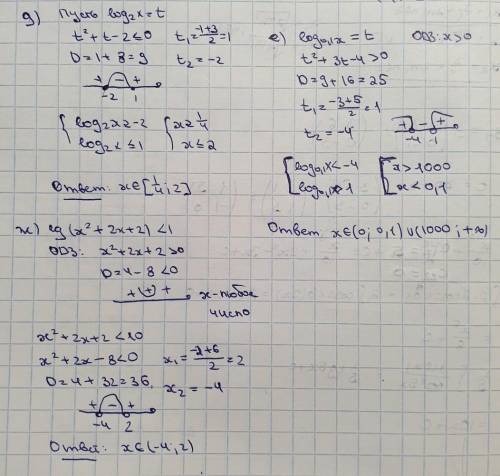 д) Пусть log₂x=t
t²+t-2≤0 t₁=(-1+3)/2=1
D=1+8=9 t₂=-2
+ - +
-2 1
{ log₂x≥-2 { x≥1/4
log₂x≤1 x≤2
Ответ: x∈[1/4;2]
е) log₀,₁x=t ОДЗ: x>0
t²+3t-4>0
D=9+16=25
t₁=(-3+5)/2=1
t₂=-4
+ - +
-4 -1
[ log₀,₁x<-4 [ x>1000
log₀,₁x>1 x<0,1
Ответ x∈(0; 0,1)∪(1000;+∞)
ж) lg(x²+2x+2)<1
ОДЗ: x²+2x+2>0
D=4-8<0
+ (+) + x-любое
число
x²+2x+2<10
x²+2x-8<0 x₁=(-2+6)/2=2
D=4+32=36 x₂=-4
+ - +
-4 2
Ответ: x∈(-4;2)